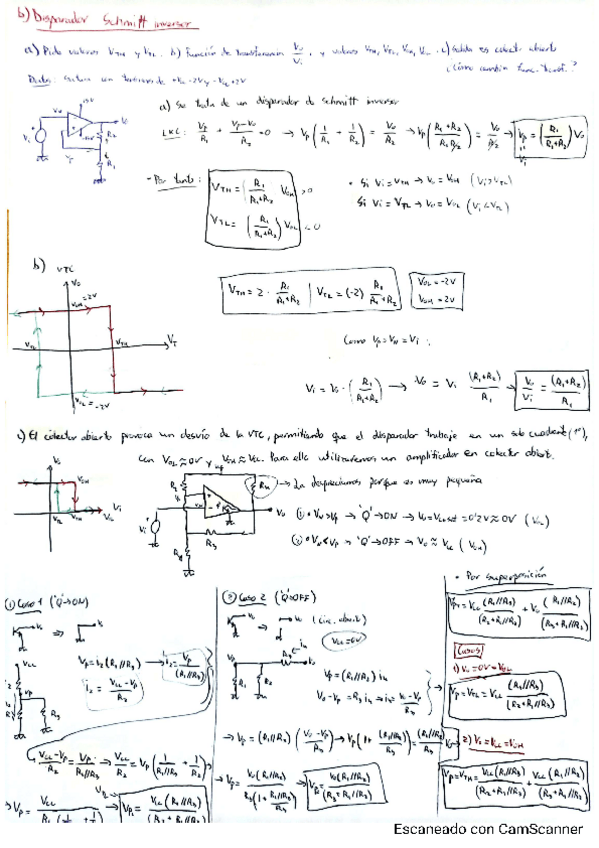 b) Disparador Schmitt inversor
a) Pide valores VTH y VTL. b) Función de transferencia Vo/Vi, y valores VTH, VTL, VOH, VOL. c) Salida es colect. abierto
¿Cómo cambia func. transf.?
a) Se trata de un disparador de Schmitt inversor
LKC: Vp/R1 + (Vp-Vo)/R2 = 0 → Vp(1/R1 + 1/R2) = Vo/R2 → Vp(R1+R2 / R1R2) = Vo/R2 → Vp = (R1/(R1+R2)) Vo
Vi
- Por tanto:
VTH = (R1/(R1+R2)) VOH > 0
VTL = (R1/(R1+R2)) VOL < 0
• Si Vi = VTH → Vo = VOH (Vi > VTL)
Si Vi = VTL → Vo = VOL (Vi < VTL)
b) VTC
Vo
VOH = 2V
VTL
VTH
VT
VOL = -2V
VTH = 2 · R1/(R1+R2) | VTL = (-2) R1/(R1+R2)
VOL = -2V
VOH = 2V
Como Vp = VN = Vi :
Vi = Vo · (R1/(R1+R2)) → Vo = Vi (R1+R2)/R1 → Vo/Vi = (R1+R2)/R1
c) El colector abierto provoca un desvío de la VTC, permitiendo que el disparador trabaje en un solo cuadrante (1º),
con VOL ≈ 0V y VOH ≈ VCC. Para ello utilizaremos un amplificador en colector abierto.
→ La despreciamos porque es muy pequeña
(1) • VN > Vp → 'Q' → ON → Vo = VCEsat = 0'2V ≈ 0V (VOL)
(2) • VN < Vp → 'Q' → OFF → Vo ≈ VCC (VOH)
(1) Caso 1 ('Q' → ON)
Vp = i2 (R1//R3) → i2 = Vp/(R1//R3)
i2 = (VCC-Vp)/R2
(VCC-Vp)/R2 = Vp/(R1//R3) → VCC/R2 = Vp (1/(R1//R3) + 1/R2)
(2) Caso 2 ('Q' → OFF)
(circ. abierto)
Vp = (R1//R2) i4
Vo - Vp = R3 i4 → i4 = (Vo-Vp)/R3
→ Vp = (R1//R2) ((Vo-Vp)/R3) → Vp (1 + (R1//R2)/R3) = (R1//R2)/R3 Vo
• Por superposición
Vp = VCC (R1//R3)/(R2+R1//R3) + Vo (R1//R2)/(R3+R1//R2)
Casos
1) Vo = 0V = VOL
Vp = VTL = VCC (R1//R3)/(R2+R1//R3)
2) Vo = VCC = VOH
Vp = VTH = VCC (R1//R3)/(R2+R1//R3) + VCC (R1//R2)/(R3+R1//R2)
Escaneado con CamScanner